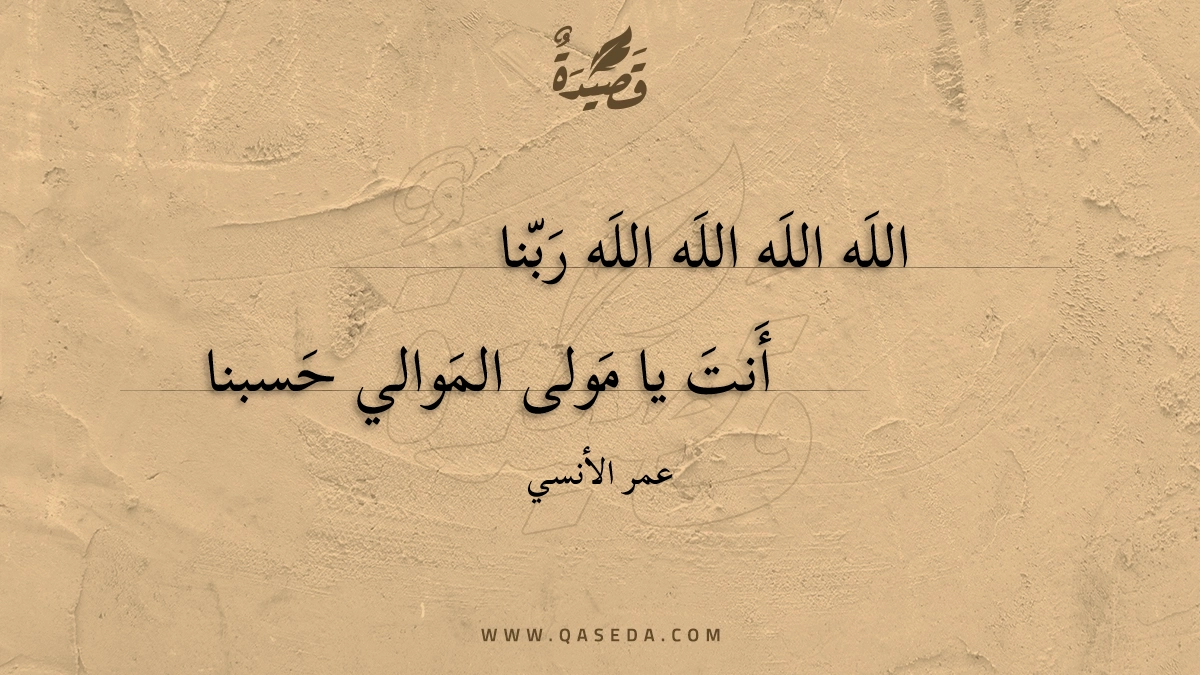 قَصِيْدَةٌ
اللَه اللَه اللَه اللَه رَبّنا
أَنتَ يا مَولى المَوالي حَسبنا
عمر الأنسي
WWW.QASEDA.COM